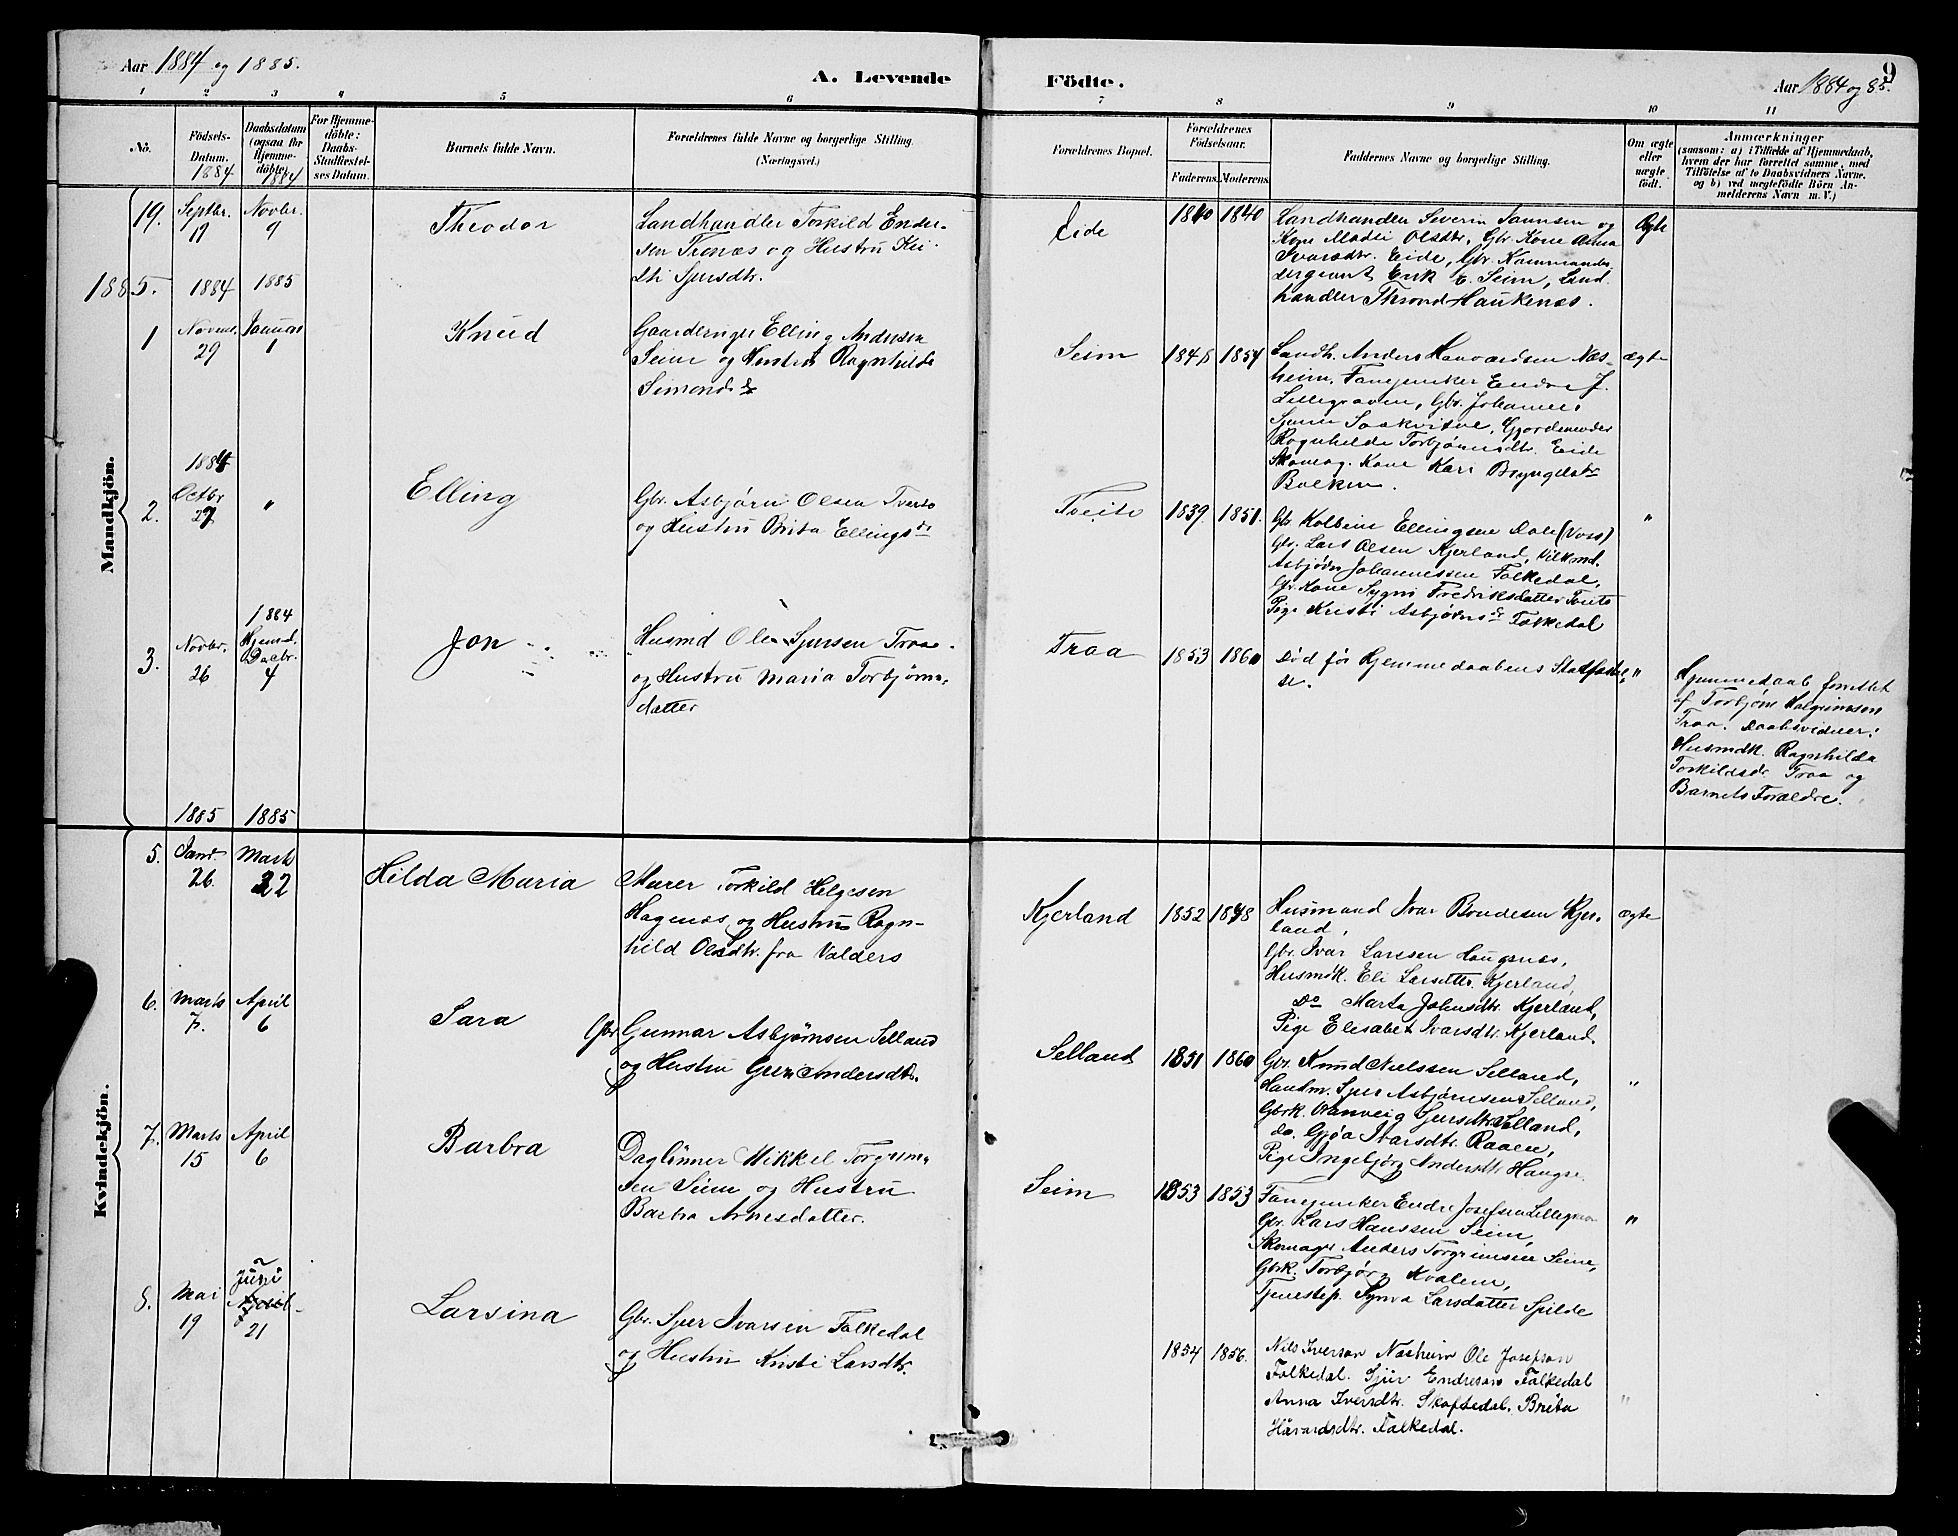 Aar 1884 og 1885.
A. Levende
Födte.
Aar 1884 og 85.
9
1 2 3 4 5 6 7 8 9 10 11
No.
Födsels-
Datum.
1884
Daabsdatum
(ogsaa for
Hjemme-
döbte).
1884
For Hjemme-
döbte:
Daabs-
Stadfæstel-
ses Datum.
Barnets fulde Navn.
Forældrenes fulde Navne og borgerlige Stilling.
(Næringsvei.)
Forældrenes Bopæl.
Forældrenes
Födselsaar.
Faderens. Moderens.
Faddernes Navne og borgerlige Stilling.
Om ægte
eller
uægte
født.
Anmærkninger
(saasom: a) i Tilfælde af Hjemmedaab,
hvem der har forrettet samme, med
Tilföielse af to Daabsvidners Navne,
og b) ved uægtefödte Börn An-
melderens Navn m. V.)
Mandkjön.
19.
Septbr.
17
Novbr.
9
Theodor
Landhandler Torkild Ender-
sen Trones og Hustru
Sjursdtr.
Eide
1840 1840
Landhandler Severin og
Kone Olsdtr, Gbr. Kone Anna
Eide, Gbr.
Sergeant Erik E. Seim, Land
handler Thrond Haukenæs.
Ægte
1885.
1884
1885
1
Novem.
29
Januar
1
Knud
Gaardbruger Elling Andersen
Seim og Hustru Ragnhilde
Simonds
Seim
1854
Landh. Anders Havardsen Næs-
heim, Fanejunker Endre J.
Lillegraven, Gbr. Johannes
Saakvitne, Gjordemoder
Ragnhilde Torbjörnsdtr. Eide
Skomag. Kone Kari Bryngelsdtr
ægte
1884
2.
Octbr
27
"
Elling
Gbr. Asbjörn Olsen Tveito
og Hustru Brita Ellingsdr
Tveito
1839 1851.
Gbr Kolbein Ellingsen Dale (Voss)
Gbr. Lars Olsen Kjerland,
Asbjörn Johannessen Falkedal,
Gbr Kone Sygni Fredriksdatter Tveito
Pige Kristi Asbjörnsdr Falkedal
"
1884
3.
Novbr.
26
Hjemd.
Decbr.
4
Jon
Husmd Ole Sjursen Traa
og Hustru Maria Torbjörns-
datter
Traa
1853 1860
Död för Hjemmedaabens Stadfæstel-
se.
"
Hjemmedaab forrettet
af Torbjörn Halgrimsen
Traa. Daabsvidner:
Husmdk. Ragnhilda
Torkildsdr. Traa og
Barnets Forældre.
1885
1885
Kvindekjön.
5.
Janr.
26.
Marts
22
Hilda Maria
Murer Torkild Helgesen
Hagenes og Hustru Ragn-
hild Olsdtr. fra Valders
Kjerland
1852 1848
Husmand Ivar Bondesen Kjer-
land,
Gbr. Ivar Larssen Haugsnæs,
Husmdk. Eli Larsdtr. Kjerland,
Do Marta Johnsdtr. Kjerland,
Pige Elisabet Ivarsdtr. Kjerland.
ægte
6.
Marts
7.
April
6
Sara
Gbr Gunnar Asbjörnsen Selland
og Hustru Guri Andersdtr.
Selland
1851 1860
Gbr. Knud Nielssen Selland,
Sjur Asbjörnsen Selland,
Gbrk. Ranveig Sjursdtr. Selland,
do. Gjöa Ivarsdtr. Raaen,
Pige Ingebjörg Andersdtr. Haugse.
"
7.
Marts
15
April
6
Barbra
Daglönner Mikkel Torgrim-
sen Seim og Hustru
Barbra Arnesdatter.
Seim
1853 1853
Fanejunker Endre Josefsen Lillegraven
Gbr. Lars Hanssen Seim,
Skomager Anders Torgrimsen Seim,
Gbrk. Torbjörg Kvalem,
Tjenestep. Synva Larsdatter Spilde
"
8.
Mai
19
Juni
21
Larsina
Gbr. Sjur Ivarsen Falkedal
og Hustru Kristi Larsdtr.
1854 1856.
Nils Iverson Næsheim Ole Josefson
Falkedal. Sjur Endreson Falkedal
Anna Iversdtr. Skaftedal. Brita
Håvardsdtr. Falkedal.
"